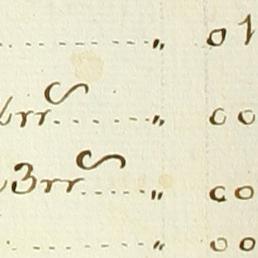 " 01
rrs " 00
3rrs " 00
" 00